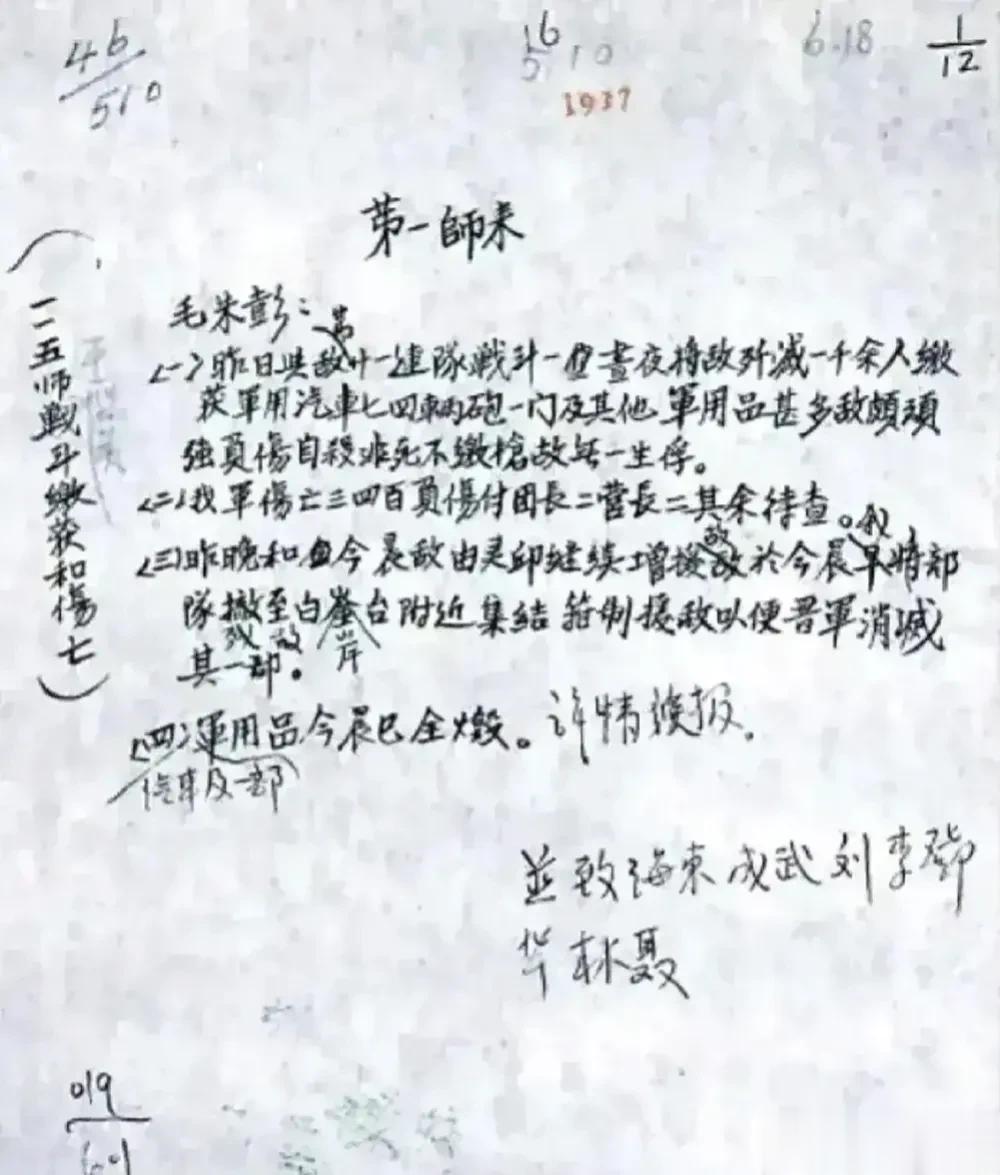 46/510
16
5 10
6.18
1/12
1937
第一師来
(一一五师戰斗繳获和傷亡)
毛朱彭：
〈一〉昨日與敵廿一連隊戰斗一晝夜将敵歼滅一千余人繳
获軍用汽車七四輌砲一门及其他軍用品甚多敵頗頑
強負傷自殺非死不缴槍故無一生俘。
〈二〉我軍傷亡三四百負傷付团長二营長二其余待查。
〈三〉昨晚和今晨敵由灵邱继续增援敌我於今晨早将部
隊撤至白崖台附近集結箝制援敵以便晋軍消滅
其一部。
残敌
岸
〈四〉軍用品今晨已全燬。詳情續报。
汽車及一部
並致海東成武刘李鄧
林聂
019
601